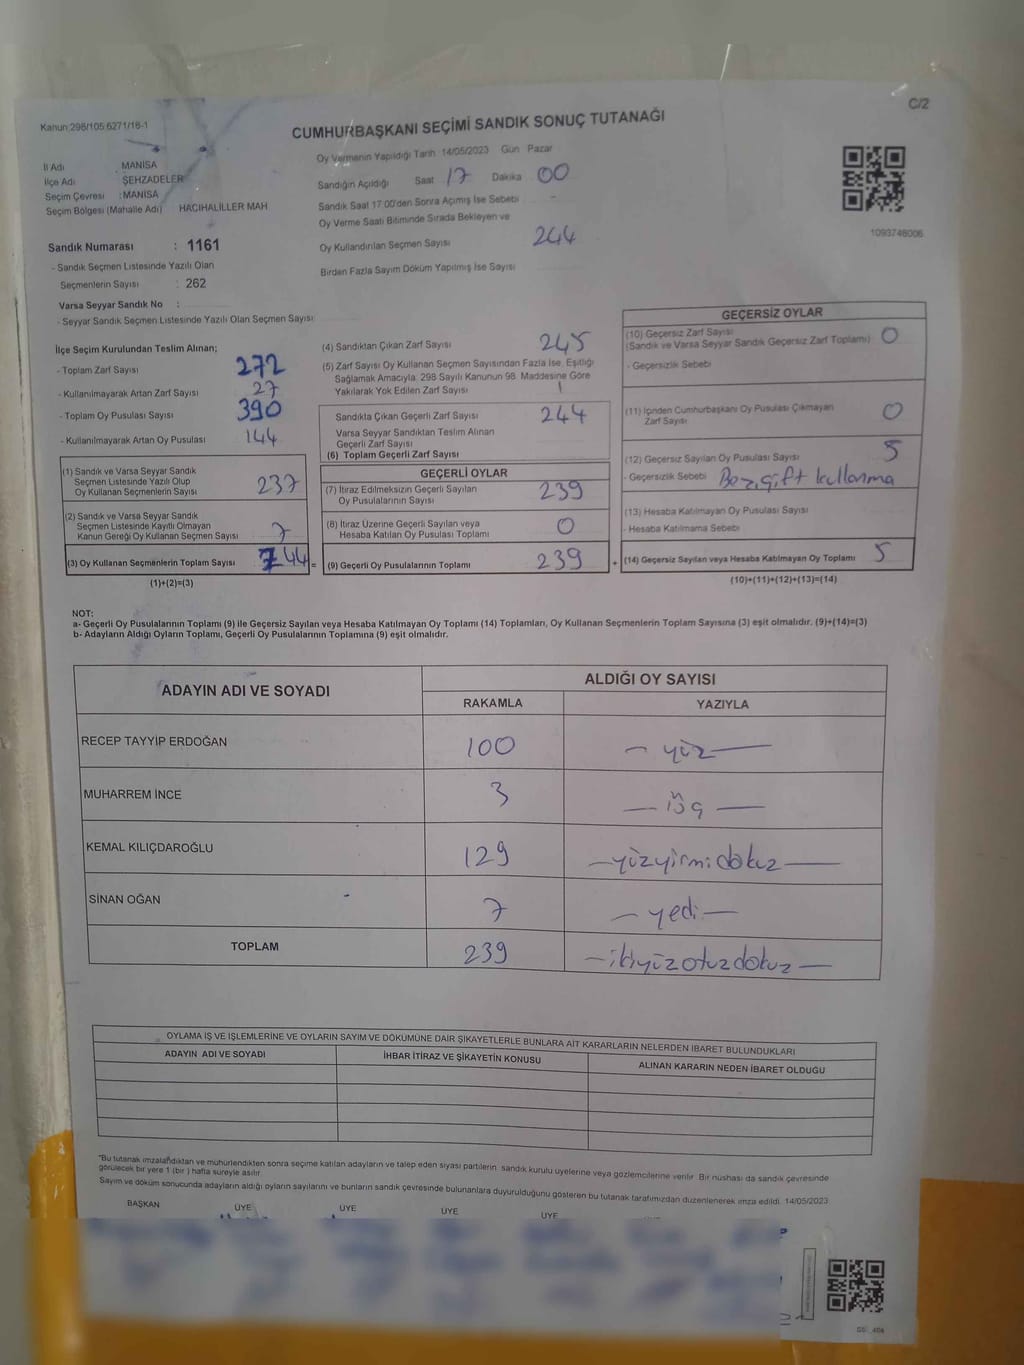 C/2
Kanun:298/105 6271/16-1
CUMHURBAŞKANI SEÇİMİ SANDIK SONUÇ TUTANAĞI
İl Adı : MANİSA
İlçe Adı : ŞEHZADELER
Seçim Çevresi : MANİSA
Seçim Bölgesi (Mahalle Adı) : HACIHALİLLER MAH
Sandık Numarası : 1161
- Sandık Seçmen Listesinde Yazılı Olan
Seçmenlerin Sayısı : 262
Varsa Seyyar Sandık No :
- Seyyar Sandık Seçmen Listesinde Yazılı Olan Seçmen Sayısı:
Oy Vermenin Yapıldığı Tarih 14/05/2023 Gün Pazar
Sandığın Açıldığı Saat 17 Dakika 00
Sandık Saat 17.00'den Sonra Açımış İse Sebebi
Oy Verme Saati Bitiminde Sırada Bekleyen ve
Oy Kullandırılan Seçmen Sayısı 244
Birden Fazla Sayım Döküm Yapılmış İse Sayısı
1093748006
İlçe Seçim Kurulundan Teslim Alınan;
- Toplam Zarf Sayısı 272
- Kullanılmayarak Artan Zarf Sayısı 27
- Toplam Oy Pusulası Sayısı 390
- Kullanılmayarak Artan Oy Pusulası 144
(1) Sandık ve Varsa Seyyar Sandık
Seçmen Listesinde Yazılı Olup
Oy Kullanan Seçmenlerin Sayısı 237
(2) Sandık ve Varsa Seyyar Sandık
Seçmen Listesinde Kayıtlı Olmayan
Kanun Gereği Oy Kullanan Seçmen Sayısı 7
(3) Oy Kullanan Seçmenlerin Toplam Sayısı 244 =
(1)+(2)=(3)
(4) Sandıktan Çıkan Zarf Sayısı 245
(5) Zarf Sayısı Oy Kullanan Seçmen Sayısından Fazla İse, Eşitliği
Sağlamak Amacıyla: 298 Sayılı Kanunun 98. Maddesine Göre
Yakılarak Yok Edilen Zarf Sayısı 1
Sandıkta Çıkan Geçerli Zarf Sayısı 244
Varsa Seyyar Sandıktan Teslim Alınan
Geçerli Zarf Sayısı
(6) Toplam Geçerli Zarf Sayısı
GEÇERLİ OYLAR
(7) İtiraz Edilmeksizin Geçerli Sayılan
Oy Pusulalarının Sayısı 239
(8) İtiraz Üzerine Geçerli Sayılan veya
Hesaba Katılan Oy Pusulası Toplamı 0
(9) Geçerli Oy Pusulalarının Toplamı 239 +
GEÇERSİZ OYLAR
(10) Geçersiz Zarf Sayısı
(Sandık ve Varsa Seyyar Sandık Geçersiz Zarf Toplamı) 0
- Geçersizlik Sebebi
(11) İçinden Cumhurbaşkanı Oy Pusulası Çıkmayan
Zarf Sayısı 0
(12) Geçersiz Sayılan Oy Pusulası Sayısı 5
- Geçersizlik Sebebi çift kullanma
(13) Hesaba Katılmayan Oy Pusulası Sayısı
- Hesaba Katılmama Sebebi
(14) Geçersiz Sayılan veya Hesaba Katılmayan Oy Toplamı 5
(10)+(11)+(12)+(13)=(14)
NOT:
a- Geçerli Oy Pusulalarının Toplamı (9) ile Geçersiz Sayılan veya Hesaba Katılmayan Oy Toplamı (14) Toplamları, Oy Kullanan Seçmenlerin Toplam Sayısına (3) eşit olmalıdır. (9)+(14)=(3)
b- Adayların Aldığı Oyların Toplamı, Geçerli Oy Pusulalarının Toplamına (9) eşit olmalıdır.
ADAYIN ADI VE SOYADI ALDIĞI OY SAYISI
RAKAMLA YAZIYLA
RECEP TAYYİP ERDOĞAN 100 – yüz –
MUHARREM İNCE 3 – üç –
KEMAL KILIÇDAROĞLU 129 – yüzyirmidokuz –
SİNAN OĞAN 7 – yedi –
TOPLAM 239 – ikiyüzotuzdokuz –
OYLAMA İŞ VE İŞLEMLERİNE VE OYLARIN SAYIM VE DÖKÜMÜNE DAİR ŞİKAYETLERLE BUNLARA AİT KARARLARIN NELERDEN İBARET BULUNDUKLARI
ADAYIN ADI VE SOYADI İHBAR İTİRAZ VE ŞİKAYETİN KONUSU ALINAN KARARIN NEDEN İBARET OLDUĞU
"Bu tutanak imzalandıktan ve mühürlendikten sonra seçime katılan adayların ve talep eden siyasi partilerin sandık kurulu üyelerine veya gözlemcilerine verilir. Bir nüshası da sandık çevresinde
görülecek bir yere 1 (bir ) hafta süreyle asılır.
Sayım ve döküm sonucunda adayların aldığı oyların sayılarını ve bunların sandık çevresinde bulunanlara duyurulduğunu gösteren bu tutanak tarafımızdan düzenlenerek imza edildi. 14/05/2023
BAŞKAN ÜYE ÜYE ÜYE ÜYE